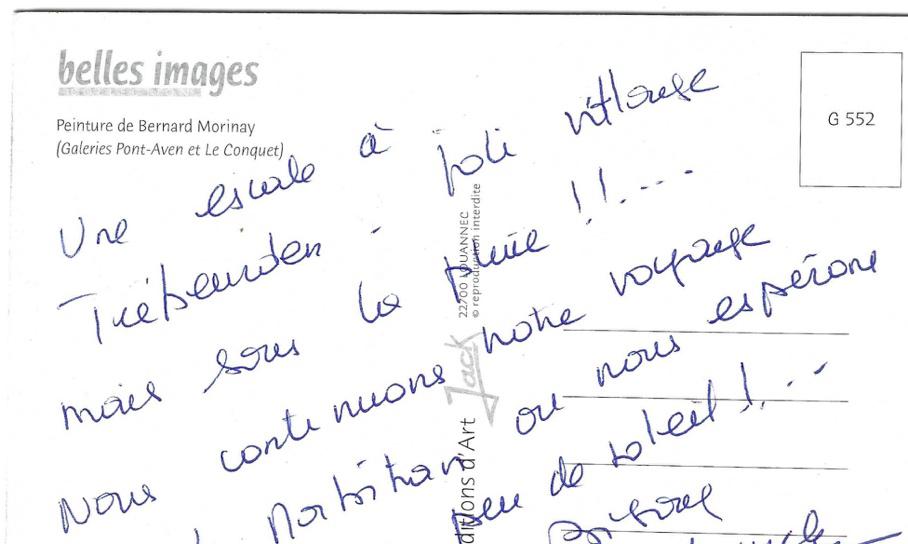 belles images
Peinture de Bernard Morinay
(Galeries Pont-Aven et Le Conquet)
G 552
Une escale à
Trébeurden - joli village
mais sous la pluie !!....
Nous continuons notre voyage
Morbihan où nous espérons
peu de soleil !...
22700 LOUANNEC
© reproduction interdite
Jack
ditions d'Art